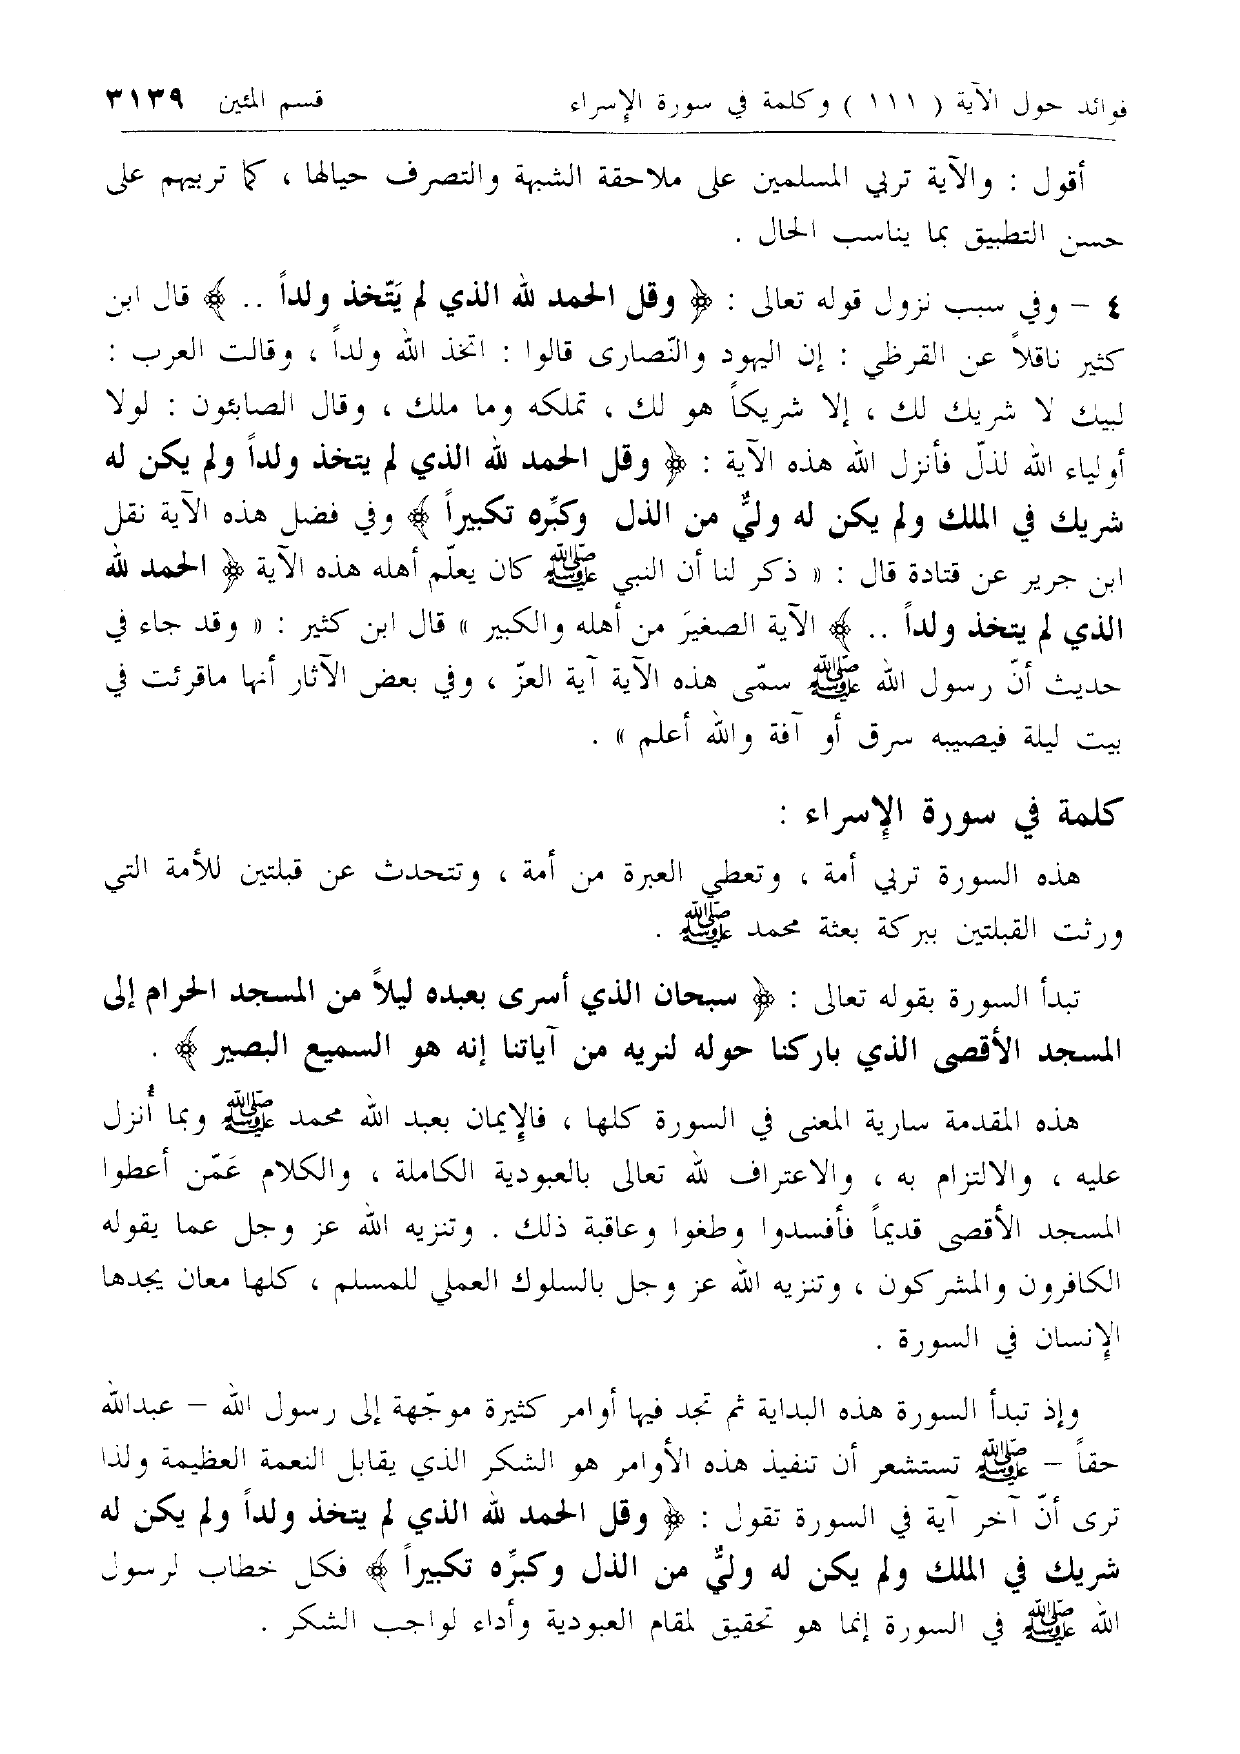 فوائد حول الآية ( ١١١ ) وكلمة في سورة الإسراء قسم المئين ٣١٣٩
أقول : والآية تربي المسلمين على ملاحقة الشبهة والتصرف حيالها ، كما تربيهم على
حسن التطبيق بما يناسب الحال .
٤ – وفي سبب نزول قوله تعالى : ﴿ وقل الحمد لله الذي لم يَتّخذ ولداً .. ﴾ قال ابن
كثير ناقلاً عن القرظي : إن اليهود والنّصارى قالوا : اتخذ الله ولداً ، وقالت العرب :
لبيك لا شريك لك ، إلا شريكاً هو لك ، تملكه وما ملك ، وقال الصابئون : لولا
أولياء الله لذلّ فأنزل الله هذه الآية : ﴿ وقل الحمد لله الذي لم يتخذ ولداً ولم يكن له
شريك في الملك ولم يكن له وليٌّ من الذل وكبِّره تكبيراً ﴾ وفي فضل هذه الآية نقل
ابن جرير عن قتادة قال : « ذكر لنا أن النبي ﷺ كان يعلّم أهله هذه الآية ﴿ الحمد لله
الذي لم يتخذ ولداً .. ﴾ الآية الصغيرَ من أهله والكبير » قال ابن كثير : « وقد جاء في
حديث أنّ رسول الله ﷺ سمّى هذه الآية آية العزّ ، وفي بعض الآثار أنها ماقرئت في
بيت ليلة فيصيبه سرق أو آفة والله أعلم » .
كلمة في سورة الإسراء :
هذه السورة تربي أمة ، وتعطي العبرة من أمة ، وتتحدث عن قبلتين للأمة التي
ورثت القبلتين ببركة بعثة محمد ﷺ .
تبدأ السورة بقوله تعالى : ﴿ سبحان الذي أسرى بعبده ليلاً من المسجد الحرام إلى
المسجد الأقصى الذي باركنا حوله لنريه من آياتنا إنه هو السميع البصير ﴾ .
هذه المقدمة سارية المعنى في السورة كلها ، فالإيمان بعبد الله محمد ﷺ وبما أُنزل
عليه ، والالتزام به ، والاعتراف لله تعالى بالعبودية الكاملة ، والكلام عَمّن أعطوا
المسجد الأقصى قديماً فأفسدوا وطغوا وعاقبة ذلك . وتنزيه الله عز وجل عما يقوله
الكافرون والمشركون ، وتنزيه الله عز وجل بالسلوك العملي للمسلم ، كلها معان يجدها
الإنسان في السورة .
وإذ تبدأ السورة هذه البداية ثم تجد فيها أوامر كثيرة موجّهة إلى رسول الله – عبدالله
حقاً – ﷺ تستشعر أن تنفيذ هذه الأوامر هو الشكر الذي يقابل النعمة العظيمة ولذا
ترى أنّ آخر آية في السورة تقول : ﴿ وقل الحمد لله الذي لم يتخذ ولداً ولم يكن له
شريك في الملك ولم يكن له وليٌّ من الذل وكبِّره تكبيراً ﴾ فكل خطاب لرسول
الله ﷺ في السورة إنما هو تحقيق لمقام العبودية وأداء لواجب الشكر .